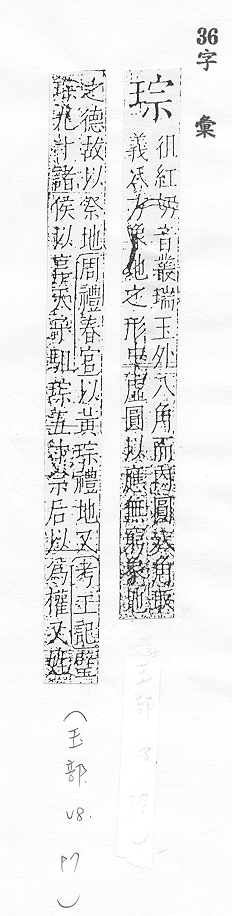 36
字彙
琮
徂紅切音叢瑞玉外八角而內圓八角取
義於八方象地之形中虛圓以應無窮象地
之德故以祭地周禮春官以黃琮禮地又考工記璧
琮九寸諸侯以享天子駔琮五寸宗后以為權又姓
(玉部 v8. P7)
(玉部. v8. P7)